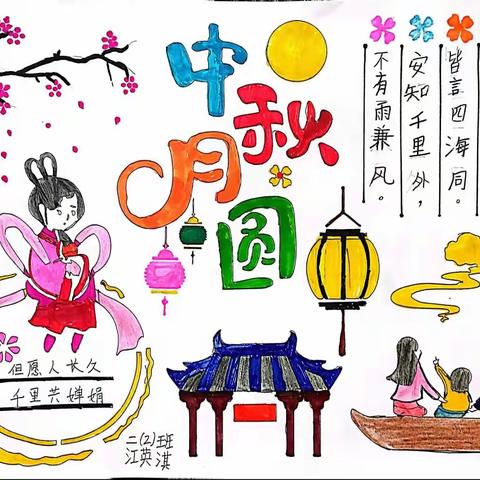 中秋
月圆
皆言四海同。
安知千里外，
不有雨兼风。
但愿人长久
千里共婵娟
二(2)班
江英淇